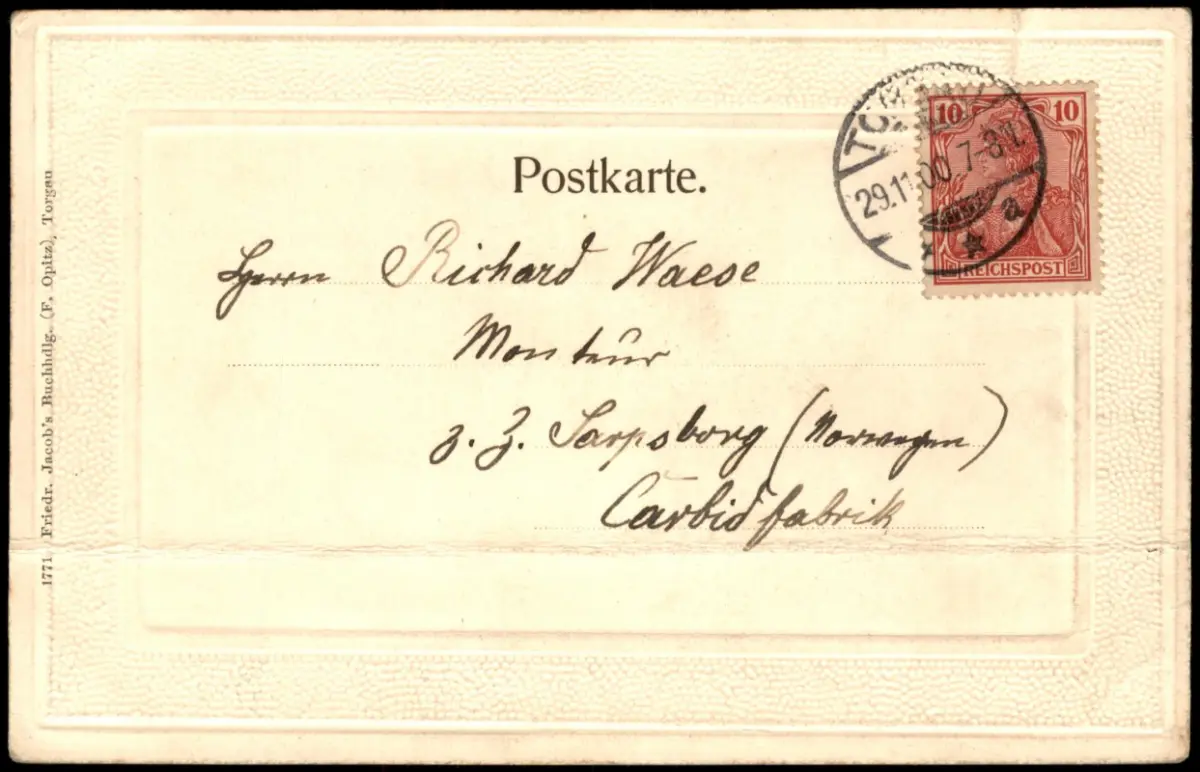 Postkarte.
Herrn Richard Waese
Monteur
z. Z. Sarpsborg (Norwegen)
Carbidfabrik
1771 Friedr. Jacob's Buchhdlg. (F. Opitz), Torgau
10 10
REICHSPOST
29.11.00 7-8
a